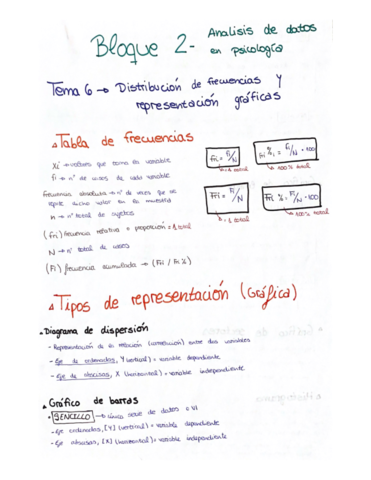 Bloque 2-
Analisis de datos
en psicología
Tema 6 → Distribución de frecuencias Y
representación gráficas
Tabla de frecuencias
Xi → valores que toma la variable
fi → nº de veces de cada variable
Frecuencia absoluta → nº de veces que se
repite dicho valor en la muestra
n → nº total de sujetos
(fri) frecuencia relativa o proporción = 1 total
N → nº total de casos
(Fi) frecuencia acumulada → (Fri / Fr%)
fri = fi/N
→ 1 total
fri % = fi/N · 100
→ 100% total
Fri = Fi/N
→ 1 total
Fri % = Fi/N · 100
→ 100% total
Tipos de representación (Gráfica)
Diagrama de dispersión
- Representación de la relación (correlación) entre dos variables
- Eje de ordenadas, Y (vertical) = variable dependiente
- Eje de abscisas, X (horizontal) = variable independiente
Gráfico de barras
• SENCILLO → única serie de datos o VI
- Eje ordenadas, [Y] (vertical) = variable dependiente
- Eje abscisas, [X] (horizontal) = variable independiente